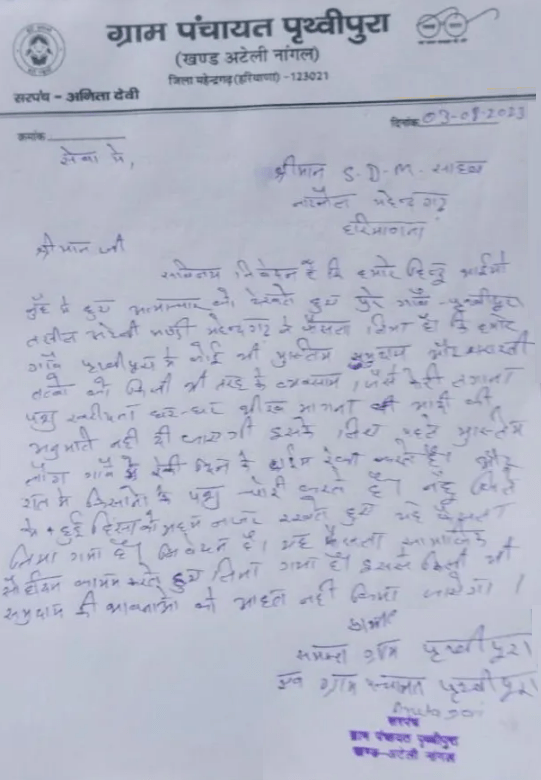 ग्राम पंचायत पृथ्वीपुरा
(खण्ड अटेली नांगल)
जिला महेन्द्रगढ़ (हरियाणा) -123021
सरपंच - अनिता देवी
क्रमांक
दिनांक 03-08-2023
सेवा मे,
श्रीमान S.D.M. साहब
नारनौल महेन्द्रगढ़
हरियाणा
श्रीमान जी
सविनय निवेदन है कि हमारे हिन्दू भाईयो
नूँह मे हुए को देखते हुए पुरे गाँव पृथ्वीपुरा
तहसील अटेली मण्डी महेन्द्रगढ़ ने फैसला लिया है कि हमारे
गाँव पृथ्वीपुरा मे कोई भी मुस्लिम समुदाय और शरारती
तत्वो को किसी भी तरह के व्यवसाय, जैसे फेरी लगाना
पशु खरीदना घर-घर भीख मागना आदी की
अनुमति नही दी जाएगी इसके लिए पहले मुस्लिम
लोग गाँव मे दिन के टाईम करते है। और
रात मे किसानो के पशु चोरी करते है। नूँह जिले
मे हुई हिंसा को मध्य नजर रखते हुए यह फैसला
लिया गया है। निवेदन है। यह फैसला सामाजिक
सौहार्द कायम करते हुए लिया गया है। इससे किसी भी
समुदाय की भावनाओ को आहत नही किया जाऐगा।
प्रार्थी
समस्त ग्राम पृथ्वीपुरा
एवं ग्राम पन्चायत पृथ्वीपुरा
सरपंच
ग्राम पंचायत पृथ्वीपुरा
खण्ड-अटेली नांगल